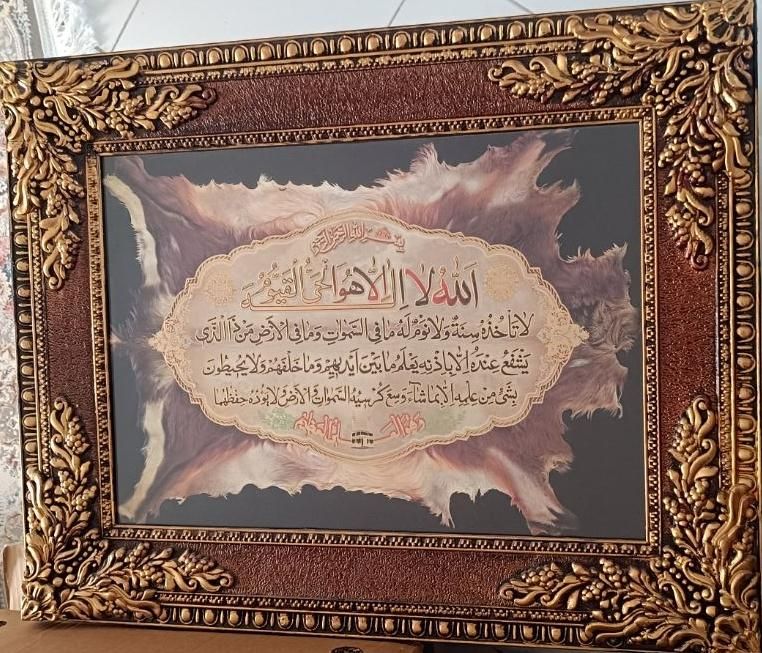 بسم الله الرحمن الرحیم
الله لا اله الا هو الحی القیوم
لا تأخذه سنة ولا نوم له ما فی السموات وما فی الارض من ذا الذی
یشفع عنده الا باذنه یعلم ما بین ایدیهم وما خلفهم ولا یحیطون
بشیء من علمه الا بما شاء وسع کرسیه السموات والارض ولا یؤده حفظهما
وهو العلی العظیم